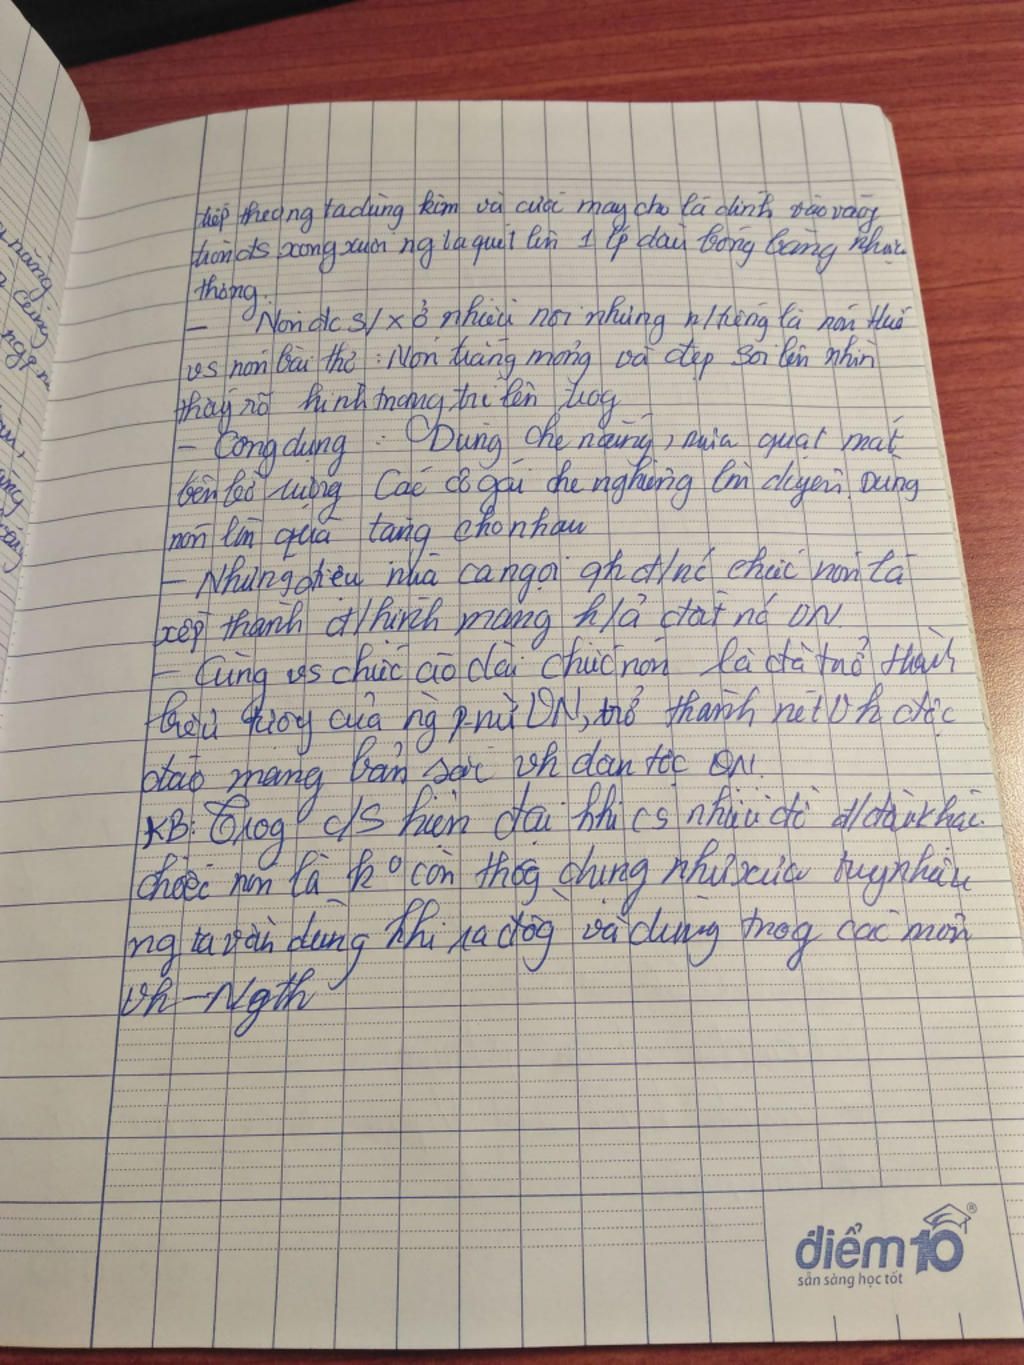 tiếp theo ng ta dùng kim và cước may cho lá dính vào vòng
tròn đs xong xuôi ng ta quét lên 1 lp dầu bóng bằng nhựa
thông.
- Nón đc s/x ở nhiều nơi nhưng n/tiếng là nón Huế
vs nón bài thơ: Nón trắng mỏng và đẹp soi lên nhìn
thấy rõ hình trang trí lên trog
- Công dụng: Dùng che nắng, mưa quạt mát
bên bờ ruộng Các cô gái che nghiêng lm duyên. Dùng
nón lm quà tặng cho nhau
- Nhưng điệu múa ca ngợi qh đ/nc chiếc nón lá
xếp thành đ/hình mang h/ả đất nc VN.
- Cùng vs chiếc áo dài chiếc nón lá đã trở thành
biểu tượg của ng p.nữ VN, trở thành nét Vh độc
đáo mang bản sắc vh dân tộc VN.
KB: Trog c/s hiện đại khi cs nhiều đồ đ/đầu khác
chiếc nón lá kº còn thôg dụng như xưa tuy nhiên
ng ta vẫn dùng khi ra đồg và dùng trog các môn
vh - Ngth
điểm10®
sẵn sàng học tốt